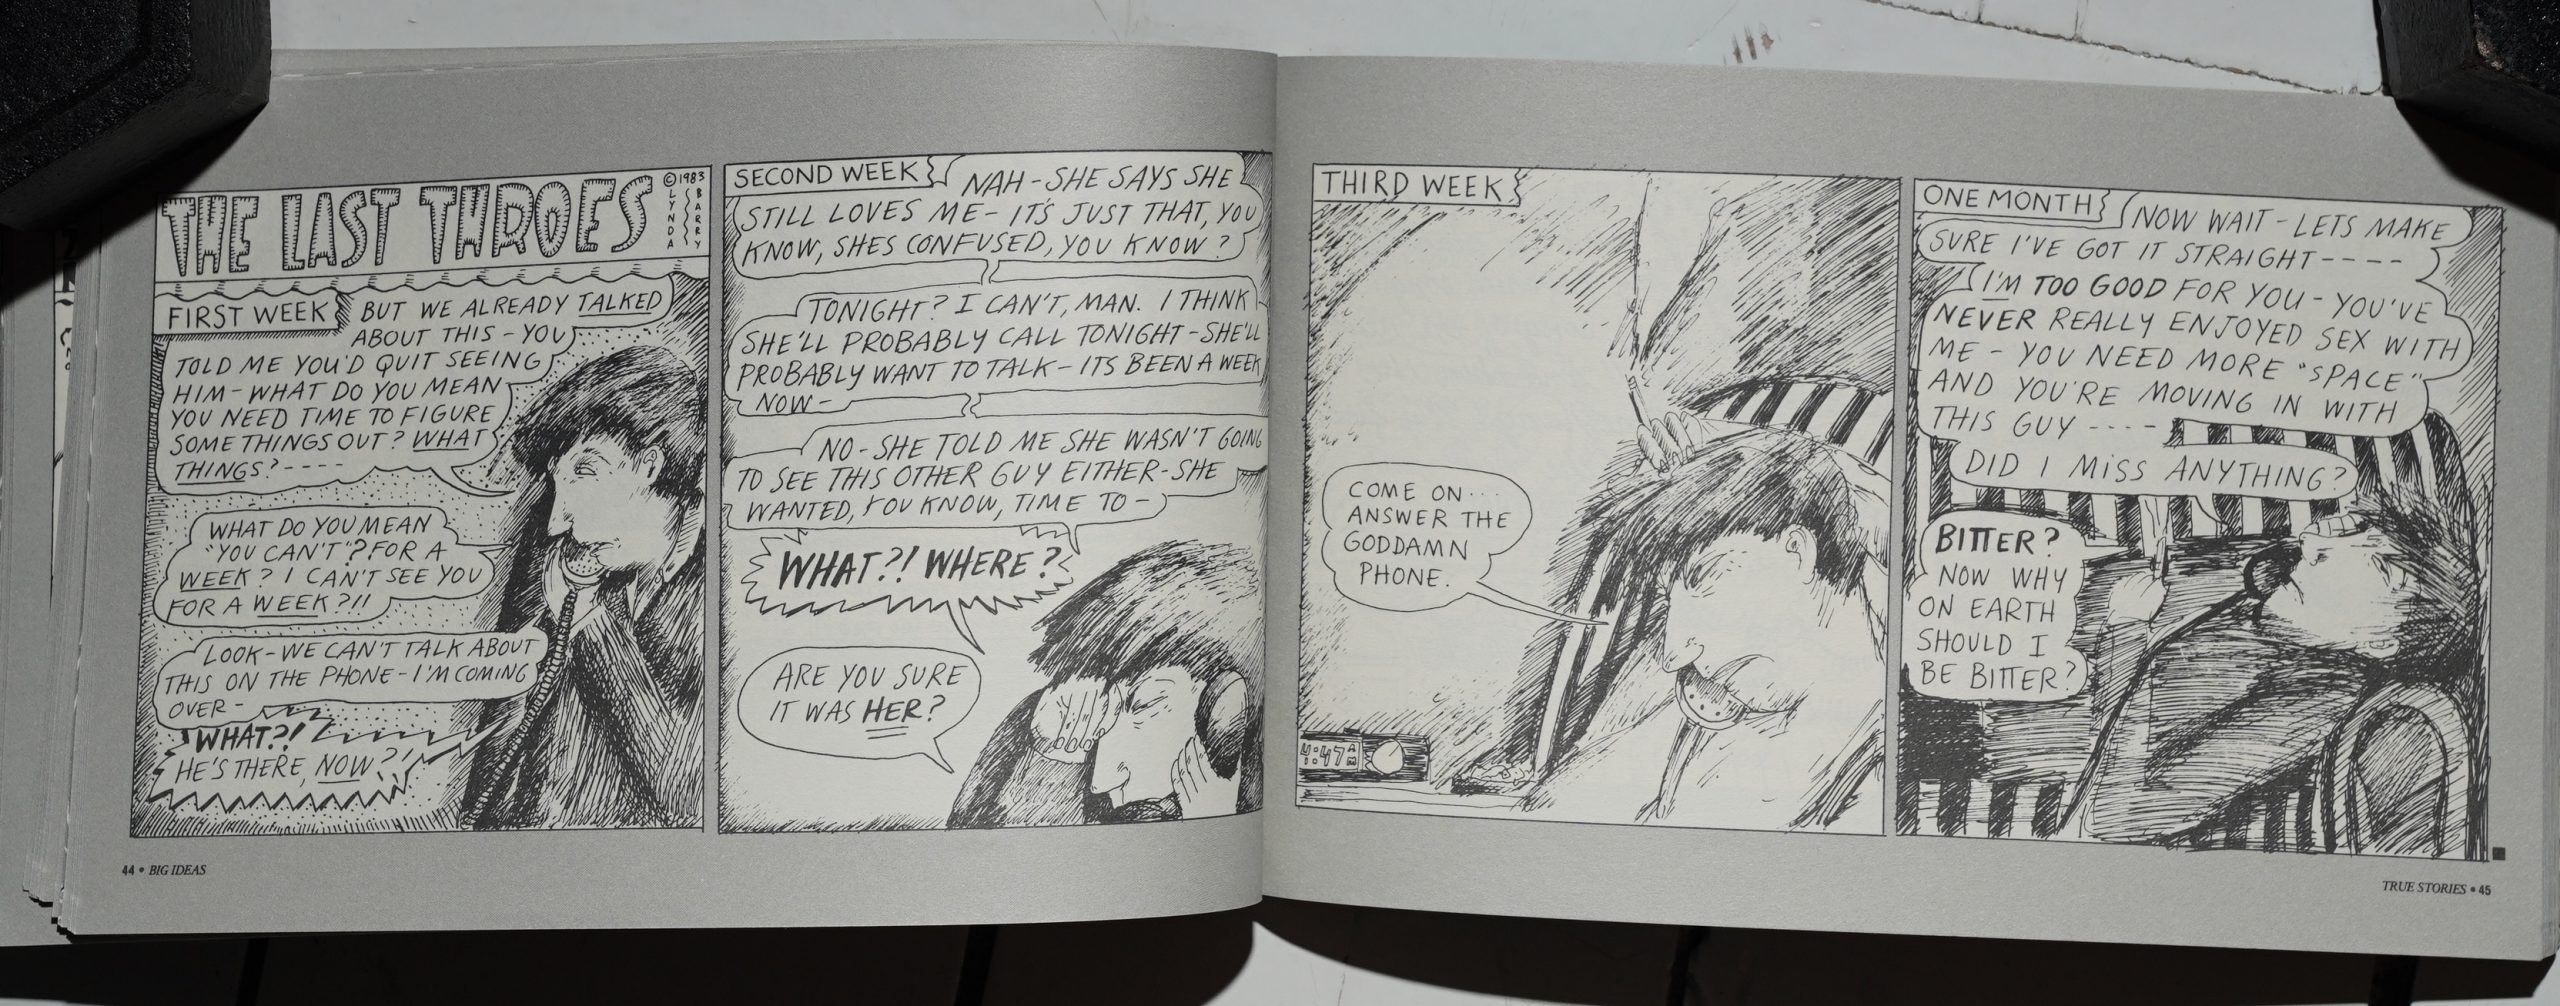 THE LAST THROES
©1983
LYNDA
BARRY
FIRST WEEK
BUT WE ALREADY TALKED
ABOUT THIS - YOU
TOLD ME YOU'D QUIT SEEING
HIM - WHAT DO YOU MEAN
YOU NEED TIME TO FIGURE
SOME THINGS OUT? WHAT
THINGS? - - - -
WHAT DO YOU MEAN
"YOU CAN'T"? FOR A
WEEK? I CAN'T SEE YOU
FOR A WEEK?!!
LOOK - WE CAN'T TALK ABOUT
THIS ON THE PHONE - I'M COMING
OVER -
WHAT?!
HE'S THERE, NOW?!
SECOND WEEK
NAH - SHE SAYS SHE
STILL LOVES ME - IT'S JUST THAT, YOU
KNOW, SHES CONFUSED, YOU KNOW?
TONIGHT? I CAN'T, MAN. I THINK
SHE'LL PROBABLY CALL TONIGHT - SHE'LL
PROBABLY WANT TO TALK - ITS BEEN A WEEK
NOW -
NO - SHE TOLD ME SHE WASN'T GOING
TO SEE THIS OTHER GUY EITHER - SHE
WANTED, YOU KNOW, TIME TO -
WHAT?! WHERE?
ARE YOU SURE
IT WAS HER?
THIRD WEEK
COME ON ...
ANSWER THE
GODDAMN
PHONE.
4:47 AM
ONE MONTH
NOW WAIT - LETS MAKE
SURE I'VE GOT IT STRAIGHT - - - -
I'M TOO GOOD FOR YOU - YOU'VE
NEVER REALLY ENJOYED SEX WITH
ME - YOU NEED MORE "SPACE"
AND YOU'RE MOVING IN WITH
THIS GUY - - - -
DID I MISS ANYTHING?
BITTER?
NOW WHY
ON EARTH
SHOULD I
BE BITTER?
44 • BIG IDEAS
TRUE STORIES • 45